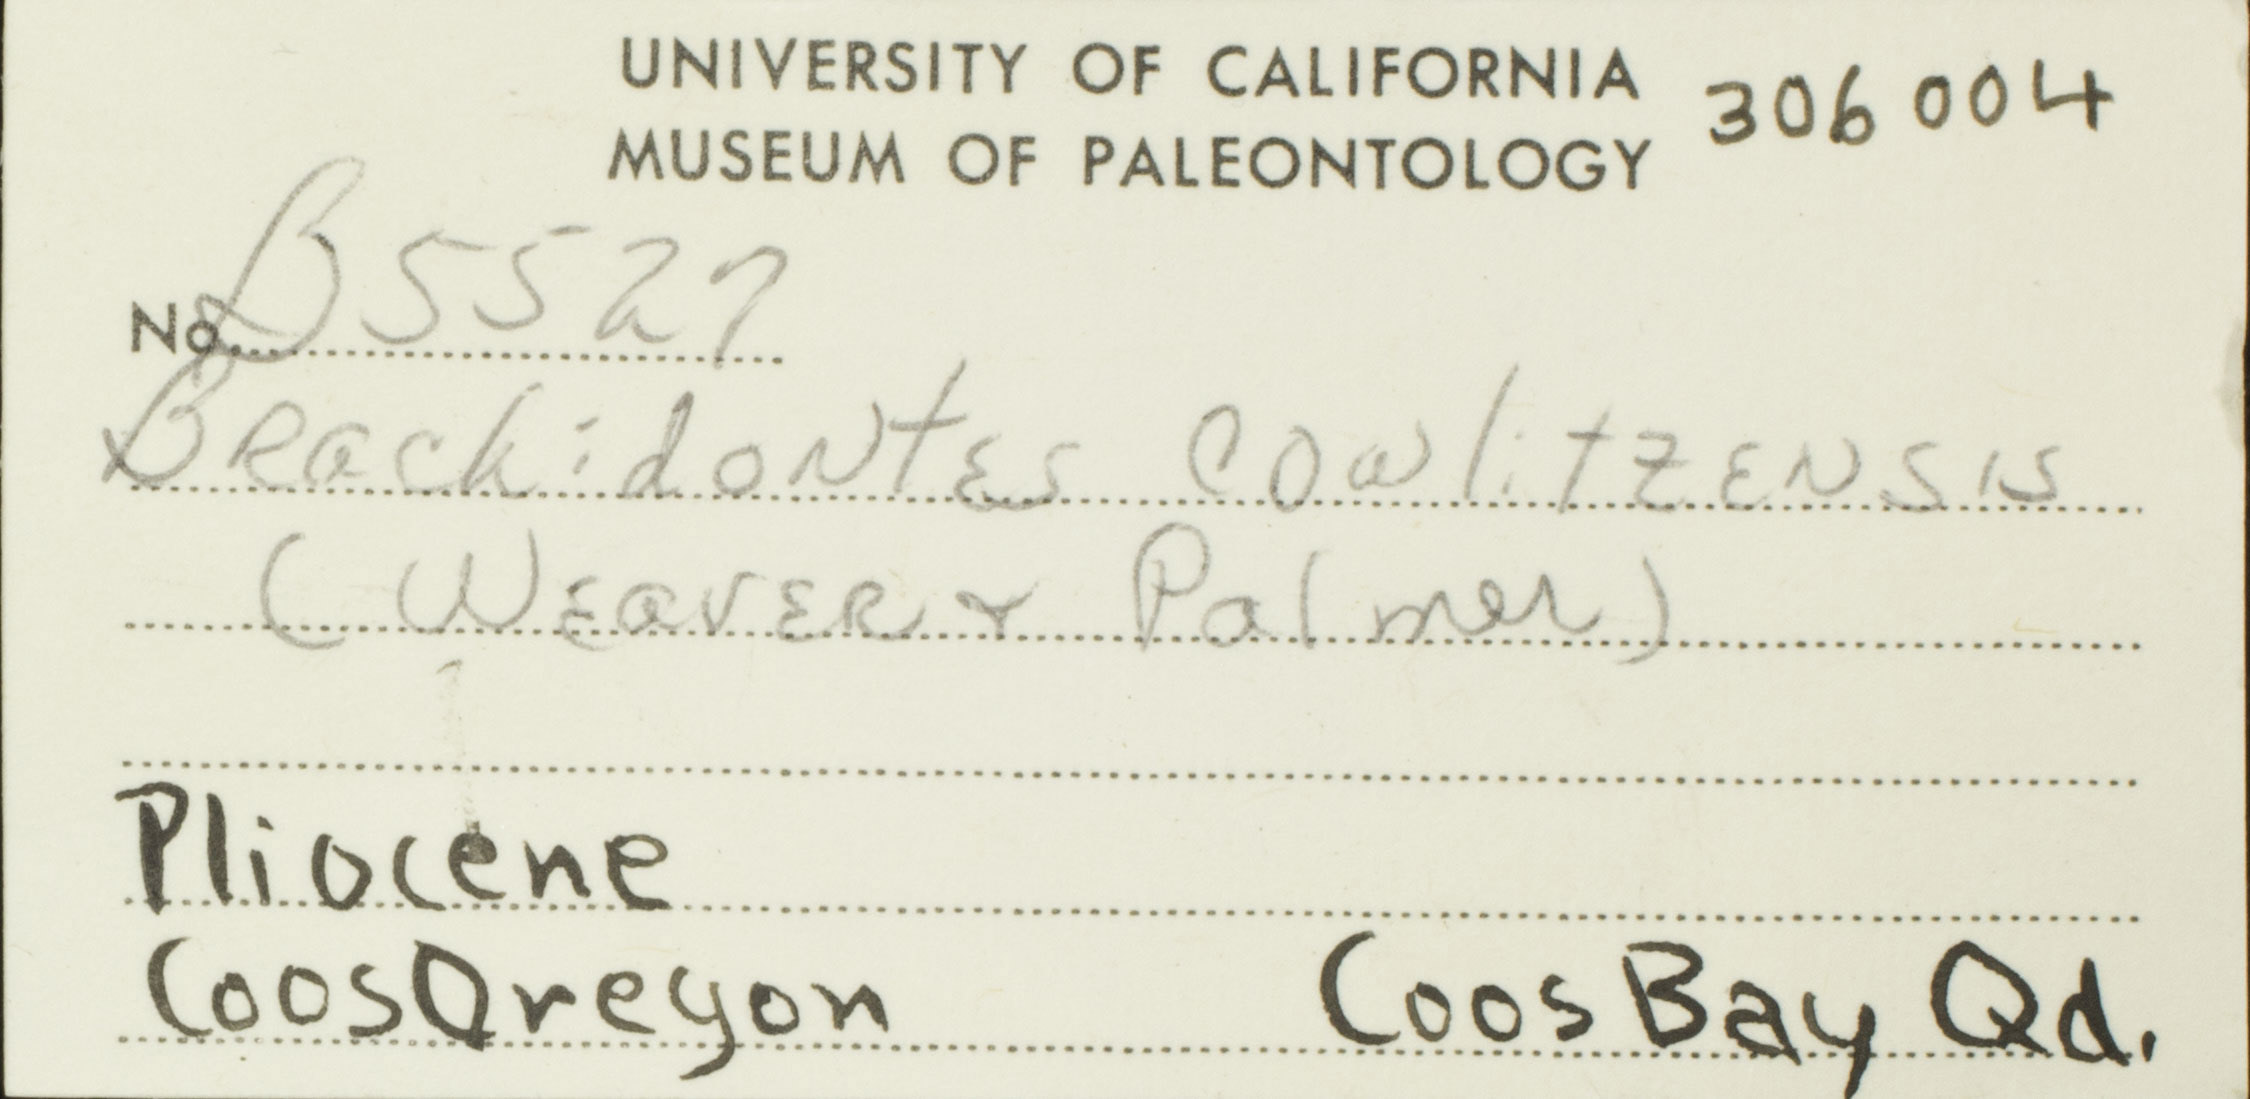 UNIVERSITY OF CALIFORNIA
MUSEUM OF PALEONTOLOGY 306004
No. B5527
Brachidontes cowlitzensis
(Weaver & Palmer)
Pliocene
Coos Oregon Coos Bay Qd.